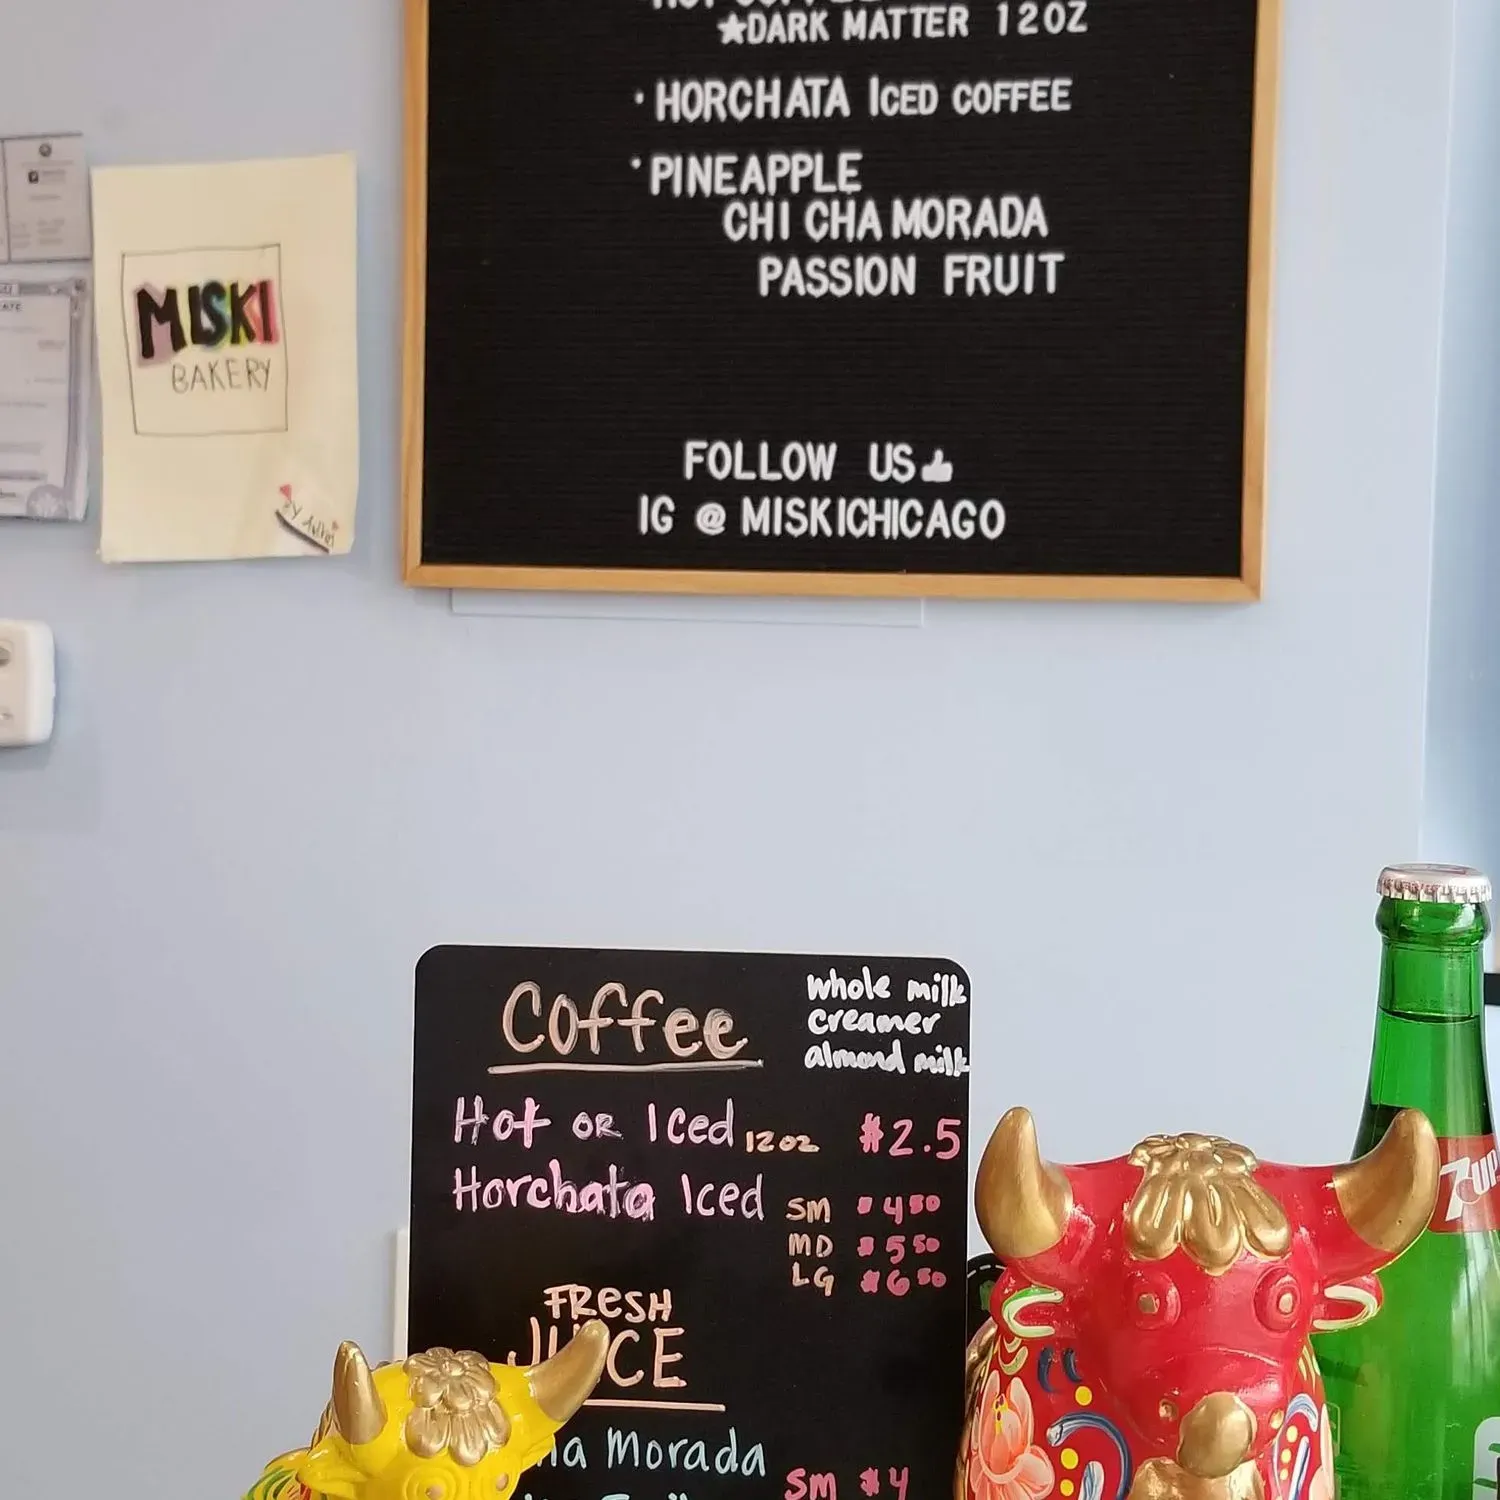 ★DARK MATTER 12OZ
• HORCHATA ICED COFFEE
• PINEAPPLE
CHI CHA MORADA
PASSION FRUIT
FOLLOW US👍
IG @ MISKICHICAGO
MISKI
BAKERY
Coffee
whole milk
creamer
almond milk
Hot OR Iced 12oz $2.5
Horchata Iced SM $4.50
MD $5.50
LG $6.50
FRESH
JUICE
Morada
SM $4
7UP